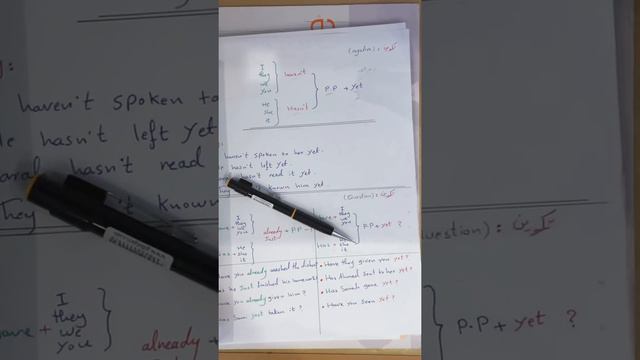 (negative): تكوين
I
they
we
you
haven't
He
she
it
Hasn't
P.P + yet
haven't spoken to her yet.
hasn't left yet.
hasn't read it yet.
They known him yet.
(Question): تكوين
I
they
we
you
He
she
it
already
Just
+ P.P
Have +
I
they
we
you
Has +
she
it
P.P + yet ?
Have you already washed the dishes?
Has he Just finished his homework?
Have you already given him?
Has Sam just taken it ?
• Have they given you yet?
• Has Ahmed sent to her yet?
• Has Sarah gone yet?
• Have you seen yet?
haven't spoken to
hasn't left yet
hasn't read
They known
I
they
we
you
already
P.P + yet ?